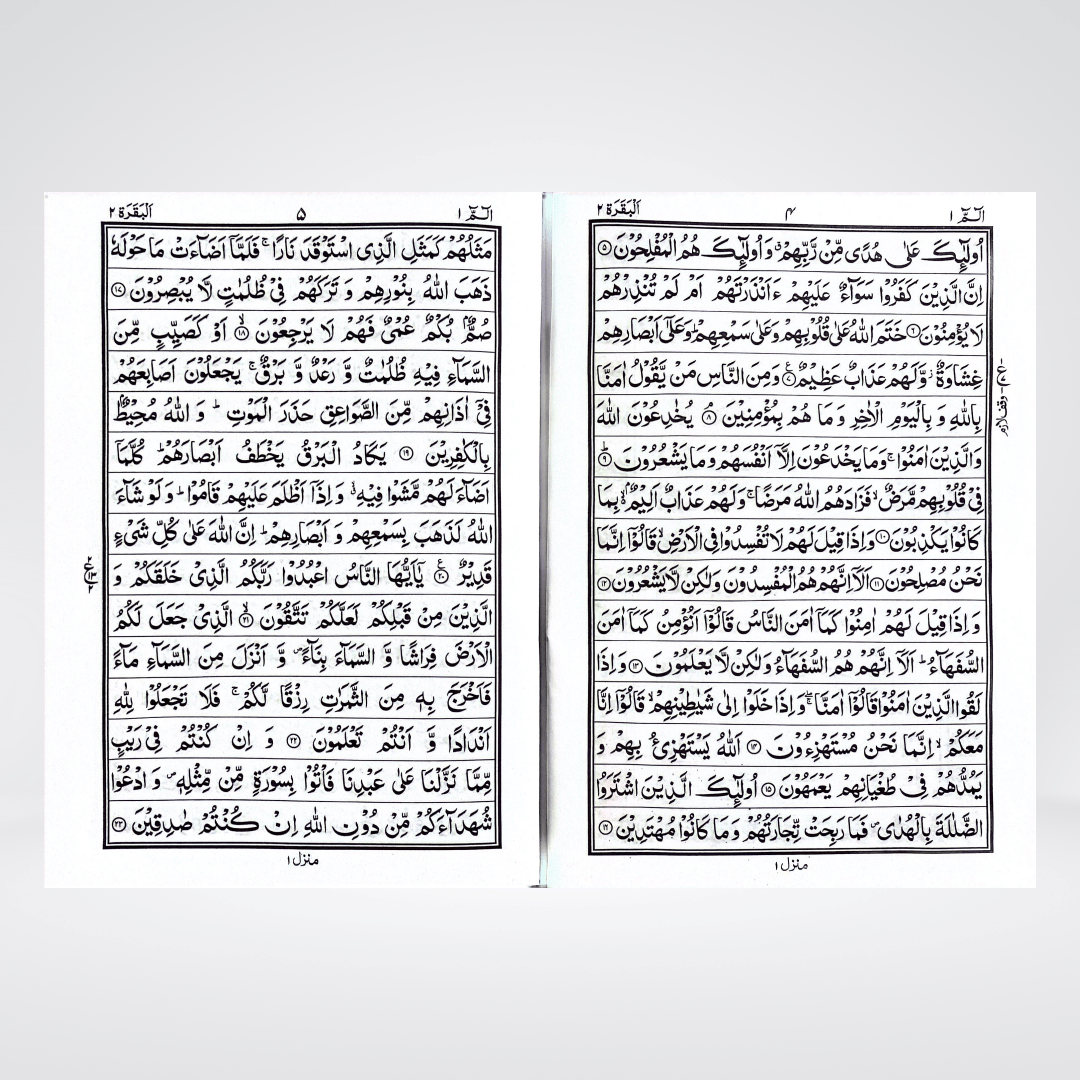 الٓمّٓ ١
۴
اَلْبَقَرَة ٢
اُولٰٓئِكَ عَلٰى هُدًى مِّنْ رَّبِّهِمْ ۗ وَ اُولٰٓئِكَ هُمُ الْمُفْلِحُوْنَ ۵
اِنَّ الَّذِيْنَ كَفَرُوْا سَوَآءٌ عَلَيْهِمْ ءَاَنْذَرْتَهُمْ اَمْ لَمْ تُنْذِرْهُمْ
لَا يُؤْمِنُوْنَ ۶ خَتَمَ اللّٰهُ عَلٰى قُلُوْبِهِمْ وَعَلٰى سَمْعِهِمْ ؕ وَعَلٰٓى اَبْصَارِهِمْ
غِشَاوَةٌ ۫ وَّلَهُمْ عَذَابٌ عَظِيْمٌ ۷ وَمِنَ النَّاسِ مَنْ يَّقُوْلُ اٰمَنَّا
بِاللّٰهِ وَ بِالْيَوْمِ الْاٰخِرِ وَ مَا هُمْ بِمُؤْمِنِيْنَ ۸ يُخٰدِعُوْنَ اللّٰهَ
وَالَّذِيْنَ اٰمَنُوْا ۚ وَمَا يَخْدَعُوْنَ اِلَّآ اَنْفُسَهُمْ وَمَا يَشْعُرُوْنَ ۹
فِيْ قُلُوْبِهِمْ مَّرَضٌ ۙ فَزَادَهُمُ اللّٰهُ مَرَضًا ۚ وَلَهُمْ عَذَابٌ اَلِيْمٌ ۢ ۙ بِمَا
كَانُوْا يَكْذِبُوْنَ ۱۰ وَاِذَا قِيْلَ لَهُمْ لَا تُفْسِدُوْا فِى الْاَرْضِ ۙ قَالُوْٓا اِنَّمَا
نَحْنُ مُصْلِحُوْنَ ۱۱ اَلَآ اِنَّهُمْ هُمُ الْمُفْسِدُوْنَ وَلٰكِنْ لَّا يَشْعُرُوْنَ ۱۲
وَ اِذَا قِيْلَ لَهُمْ اٰمِنُوْا كَمَآ اٰمَنَ النَّاسُ قَالُوْٓا اَنُؤْمِنُ كَمَآ اٰمَنَ
السُّفَهَآءُ ؕ اَلَآ اِنَّهُمْ هُمُ السُّفَهَآءُ وَلٰكِنْ لَّا يَعْلَمُوْنَ ۱۳ وَاِذَا
لَقُوا الَّذِيْنَ اٰمَنُوْا قَالُوْٓا اٰمَنَّا ۖۚ وَاِذَا خَلَوْا اِلٰى شَيٰطِيْنِهِمْ ۙ قَالُوْٓا اِنَّا
مَعَكُمْ ۙ اِنَّمَا نَحْنُ مُسْتَهْزِءُوْنَ ۱۴ اَللّٰهُ يَسْتَهْزِئُ بِهِمْ وَ
يَمُدُّهُمْ فِيْ طُغْيَانِهِمْ يَعْمَهُوْنَ ۱۵ اُولٰٓئِكَ الَّذِيْنَ اشْتَرَوُا
الضَّلٰلَةَ بِالْهُدٰى ۪ فَمَا رَبِحَتْ تِّجَارَتُهُمْ وَ مَا كَانُوْا مُهْتَدِيْنَ ۱۶
ع
وقف لازم
منزل ١
الٓمّٓ ١
۵
اَلْبَقَرَة ٢
مَثَلُهُمْ كَمَثَلِ الَّذِى اسْتَوْقَدَ نَارًا ۚ فَلَمَّآ اَضَآءَتْ مَا حَوْلَهٗ
ذَهَبَ اللّٰهُ بِنُوْرِهِمْ وَ تَرَكَهُمْ فِيْ ظُلُمٰتٍ لَّا يُبْصِرُوْنَ ۱۷
صُمٌّۢ بُكْمٌ عُمْىٌ فَهُمْ لَا يَرْجِعُوْنَ ۱۸ اَوْ كَصَيِّبٍ مِّنَ
السَّمَآءِ فِيْهِ ظُلُمٰتٌ وَّ رَعْدٌ وَّ بَرْقٌ ۚ يَجْعَلُوْنَ اَصَابِعَهُمْ
فِيْٓ اٰذَانِهِمْ مِّنَ الصَّوَاعِقِ حَذَرَ الْمَوْتِ ؕ وَ اللّٰهُ مُحِيْطٌۢ
بِالْكٰفِرِيْنَ ۱۹ يَكَادُ الْبَرْقُ يَخْطَفُ اَبْصَارَهُمْ ؕ كُلَّمَآ
اَضَآءَ لَهُمْ مَّشَوْا فِيْهِ ۙ وَ اِذَآ اَظْلَمَ عَلَيْهِمْ قَامُوْا ؕ وَ لَوْ شَآءَ
اللّٰهُ لَذَهَبَ بِسَمْعِهِمْ وَ اَبْصَارِهِمْ ؕ اِنَّ اللّٰهَ عَلٰى كُلِّ شَيْءٍ
قَدِيْرٌ ۲۰ يٰٓاَيُّهَا النَّاسُ اعْبُدُوْا رَبَّكُمُ الَّذِيْ خَلَقَكُمْ وَ
الَّذِيْنَ مِنْ قَبْلِكُمْ لَعَلَّكُمْ تَتَّقُوْنَ ۲۱ الَّذِيْ جَعَلَ لَكُمُ
الْاَرْضَ فِرَاشًا وَّ السَّمَآءَ بِنَآءً ۪ وَّ اَنْزَلَ مِنَ السَّمَآءِ مَآءً
فَاَخْرَجَ بِهٖ مِنَ الثَّمَرٰتِ رِزْقًا لَّكُمْ ۚ فَلَا تَجْعَلُوْا لِلّٰهِ
اَنْدَادًا وَّ اَنْتُمْ تَعْلَمُوْنَ ۲۲ وَ اِنْ كُنْتُمْ فِيْ رَيْبٍ
مِّمَّا نَزَّلْنَا عَلٰى عَبْدِنَا فَاْتُوْا بِسُوْرَةٍ مِّنْ مِّثْلِهٖ ۪ وَ ادْعُوْا
شُهَدَآءَكُمْ مِّنْ دُوْنِ اللّٰهِ اِنْ كُنْتُمْ صٰدِقِيْنَ ۲۳
٢
ع ۱۳
٢
منزل ١